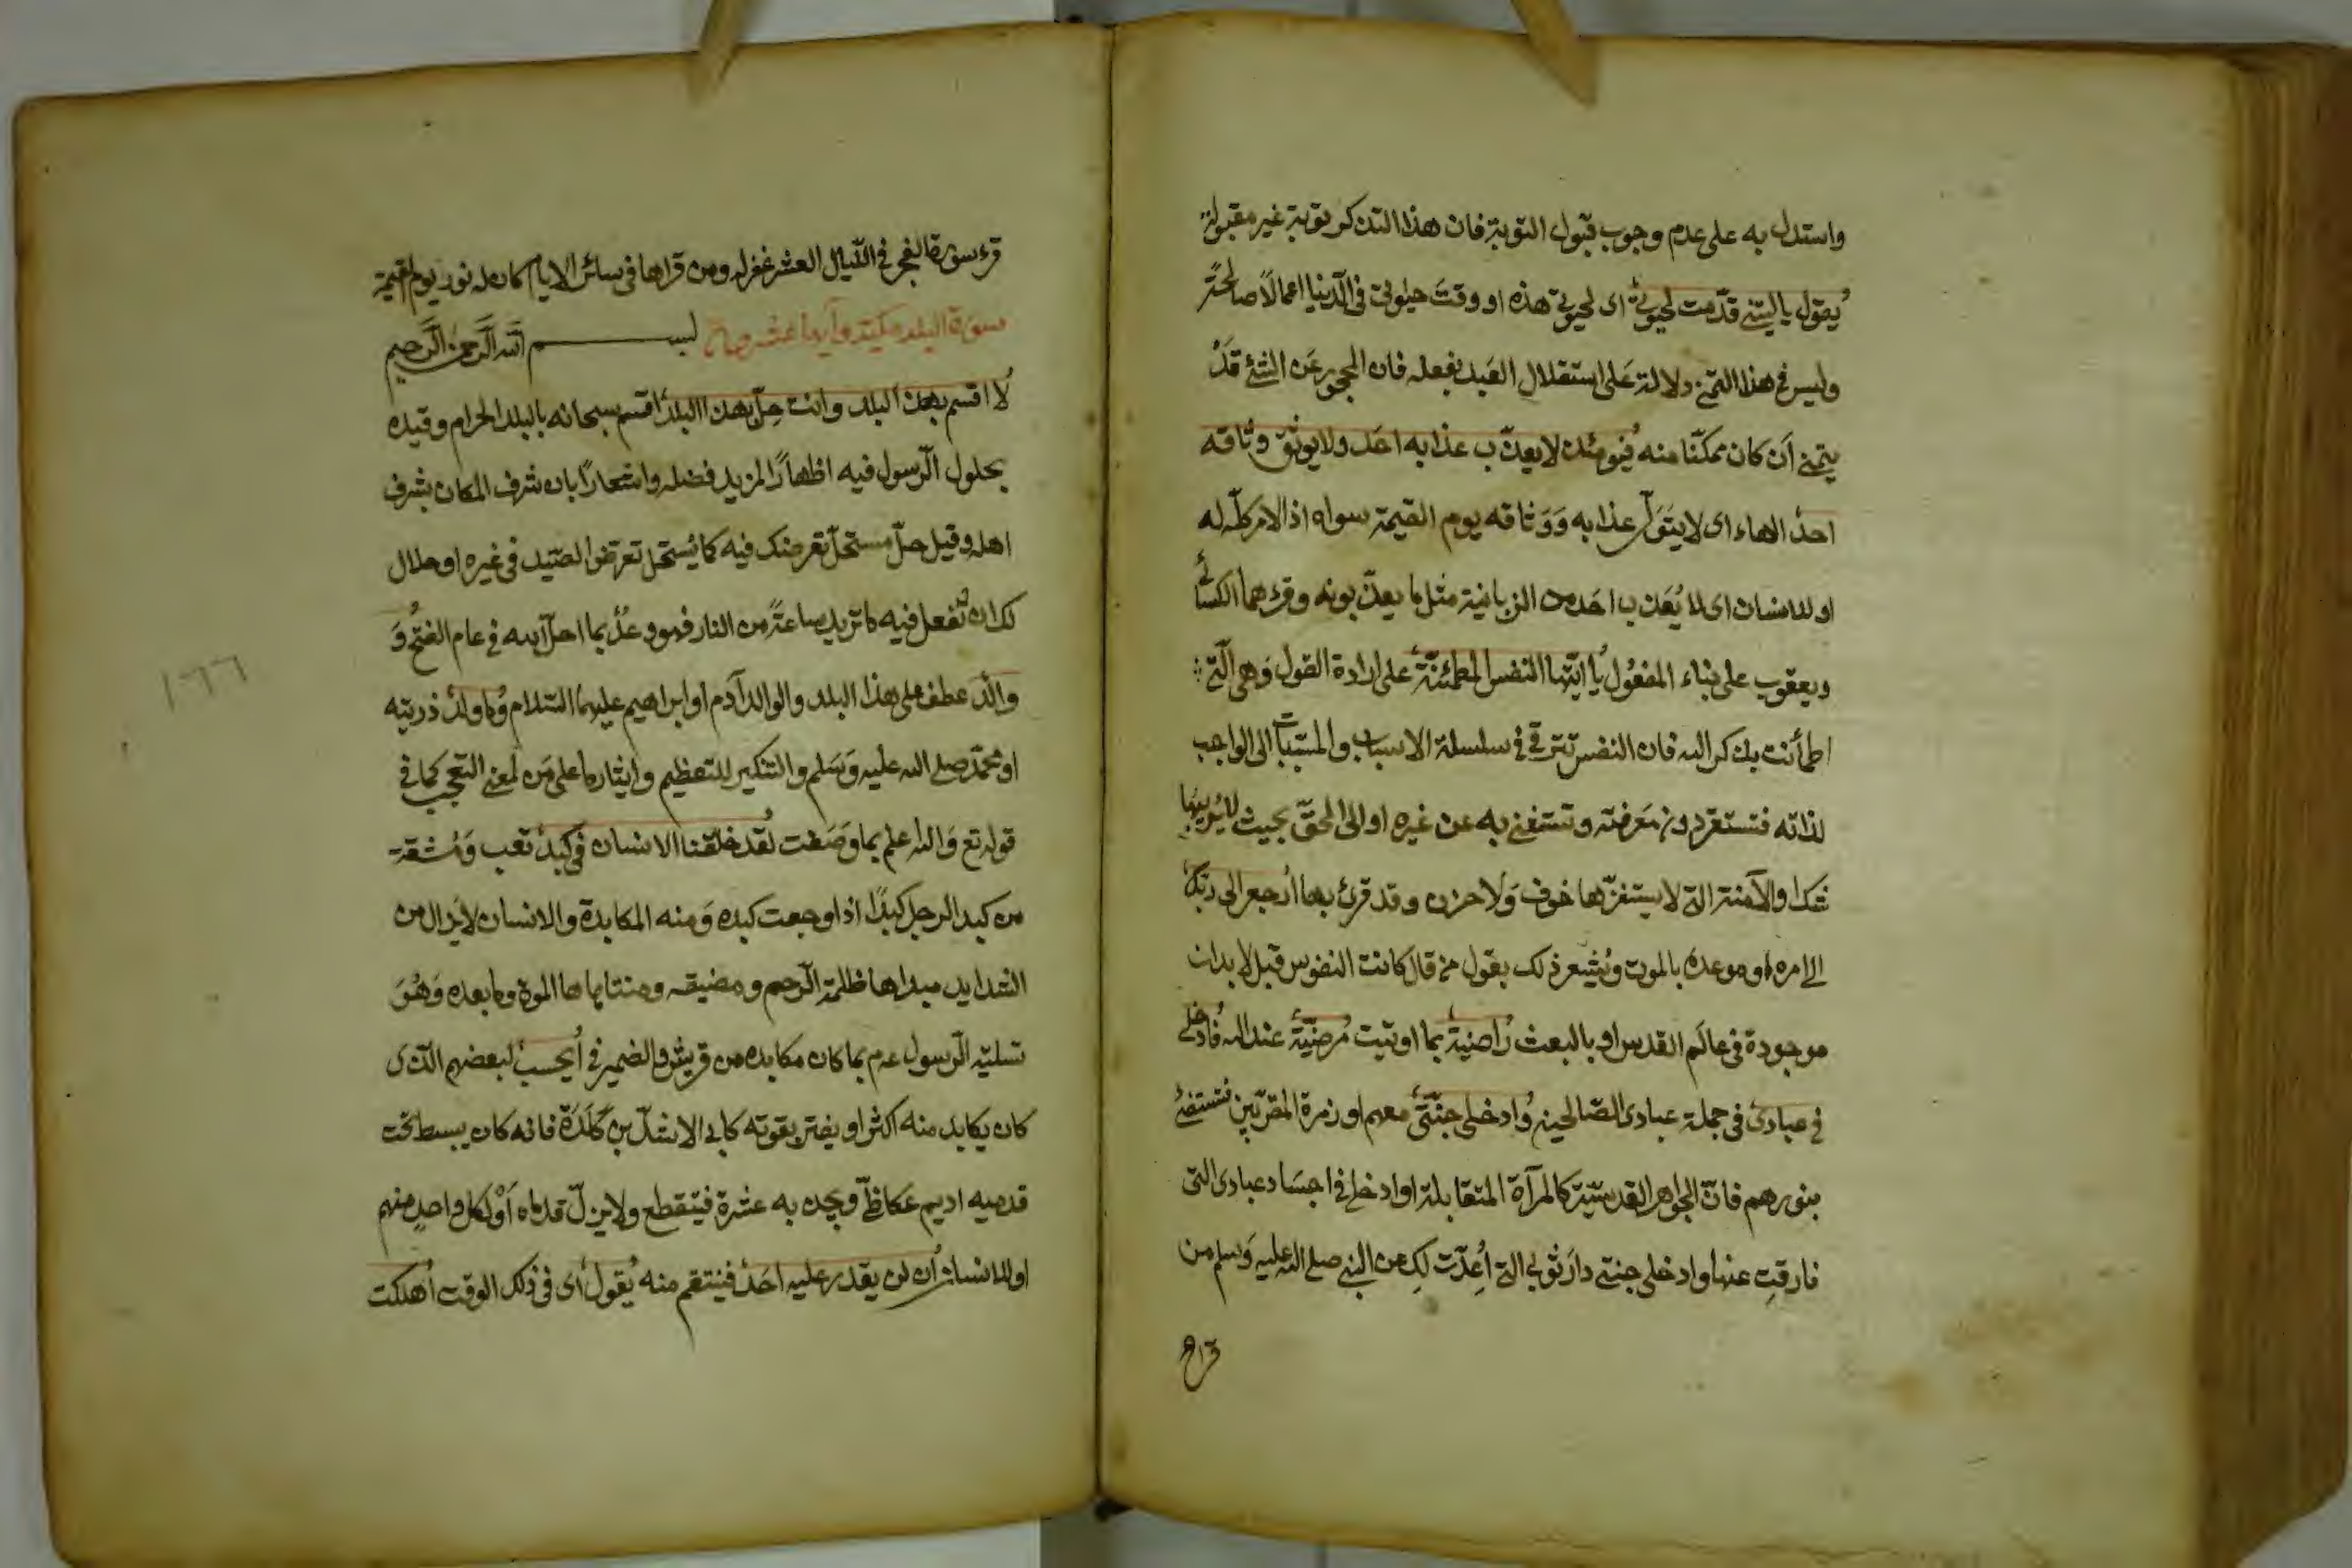 واستدل به على عدم وجوب قبول التوبة فان هذا التذكر توبة غير مقبولة
يقول ياليتني قدّمت لحيوتي اى لحيوتي هذه او وقت حيوتي في الدنيا اعمالًا صالحة
وليس في هذا التمني دلالة على استقلال العبد بفعله فان المحجور عن الشئ قد
يتمنى أن كان ممكنًا منه فيومئذ لا يعذب عذابه احد ولا يوثق وثاقه
احد الهاء اى لا يتولّى عذابه ووثاقه يوم القيمة سواه اذ الامر كلّه له
او للانسان اى لا يُعَذب احد من الزبانية مثل ما يعذّبونه وقرءهما الكسائي
ويعقوب على بناء المفعول يا ايّتها النفس المطمئنّة على ارادة القول وهي الّتي
اطمأنت بذكر الله فان النفس تترقى في سلسلة الاسباب والمسببات الى الواجب
لذاته فتستقر دون معرفته وتستغني به عن غيره او الى الحقّ بحيث لا يُريبها
شك او الآمنة التي لا يستفزّها خوف ولا حزن وقد قرئ بها ارجعي الى ربك
الى امره او موعده بالموت ويُشعر ذلك بقول من قال كانت النفوس قبل الابدان
موجودة في عالم القدس او بالبعث راضية بما اوتيت مرضيّة عند الله فادخلي
في عبادي في جملة عبادى الصّالحين وادخلي جنّتي معهم او زمرة المقرّبين فتستضئ
بنورهم فانّ الجواهر القدسيّة كالمرآة المتقابلة او ادخلي في اجساد عبادى التى
فارقتِ عنها وادخلي جنتي دار ثوابي التي أُعدّت لكِ من النبي صلى الله عليه وسلم من
قراء
قرء سورة الفجر في اللّيالى العشر غفر له ومن قراها في سائر الايام كان له نور يوم القيمة
سورة البلد مكية وآيها عشرون بسم الله الرّحمن الرّحيم
لا اقسم بهذا البلد وانت حلّ بهذا البلد اقسم سبحانه بالبلد الحرام وقيده
بحلول الرّسول فيه اظهارًا لمزيد فضله واشعارًا بان شرف المكان بشرف
اهله وقيل حلّ مستحلّ تعرضك فيه كما يُستحل تعرّض الصّيد في غيره او حلال
لك ان تفعل فيه ما تريد ساعةً من النار فهو وعدٌ بما احلّ الله في عام الفتح و
والد عطف على بهذا البلد والوالد آدم او ابراهيم عليهما السّلام وما ولد ذريته
او محمّد صلى الله عليه وسلم والتنكير للتعظيم وايثار ما على مَن لمعنى التعجب كما في
قوله تع والله اعلم بما وضعت لقد خلقنا الانسان في كبد تعب ومشقة
من كبد الرجل كبدًا اذا وجعت كبده ومنه المكابدة والانسان لا يزال من
الشدايد مبداها ظلمة الرّحم ومضيقه ومنتهاها الموت وما بعده وهُوَ
تسلية الرّسول عم بما كان مكابده من قريش والضمير في أيحسب لبعضهم الّذى
كان يكابد منه اكثر او يفتر بقوته كابي الاشدّ بن كَلَدَة فانه كان يبسط تحت
قدميه اديم عكاظيّ ويجذبه عشرة فيتقطع ولا يزلّ قدماه أَوْ لكل واحدٍ منهم
او للانسان أن لن يقدر عليه احد فينتقم منه يقول اى في ذلك الوقت أهلكت
١٦٦